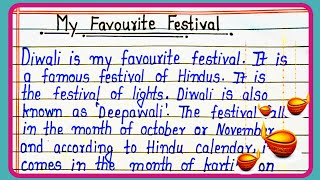 My Favourite Festival
Diwali is my favourite festival. It is
a famous festival of Hindus. It is
the festival of lights. Diwali is also
known as 'Deepawali'. The festival
in the month of october or November
and according to Hindu calendar,
comes in the month of on